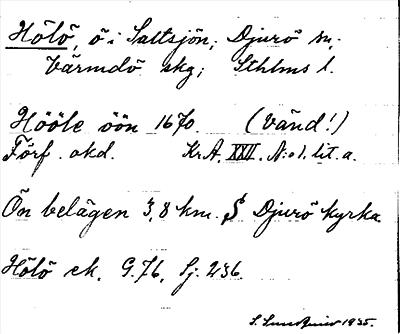 Hölö, ö i Saltsjön; Djurö sn;
Värmdö skg; Sthlms l.
Hööle öön 1670. (Vänd!)
Förf. okd. Kr.A. XXII. N:o 1. lit. a.
Ön belägen 3,8 km. S Djurö kyrka
Hölö ek. G.76, Sj. 236.
1935.